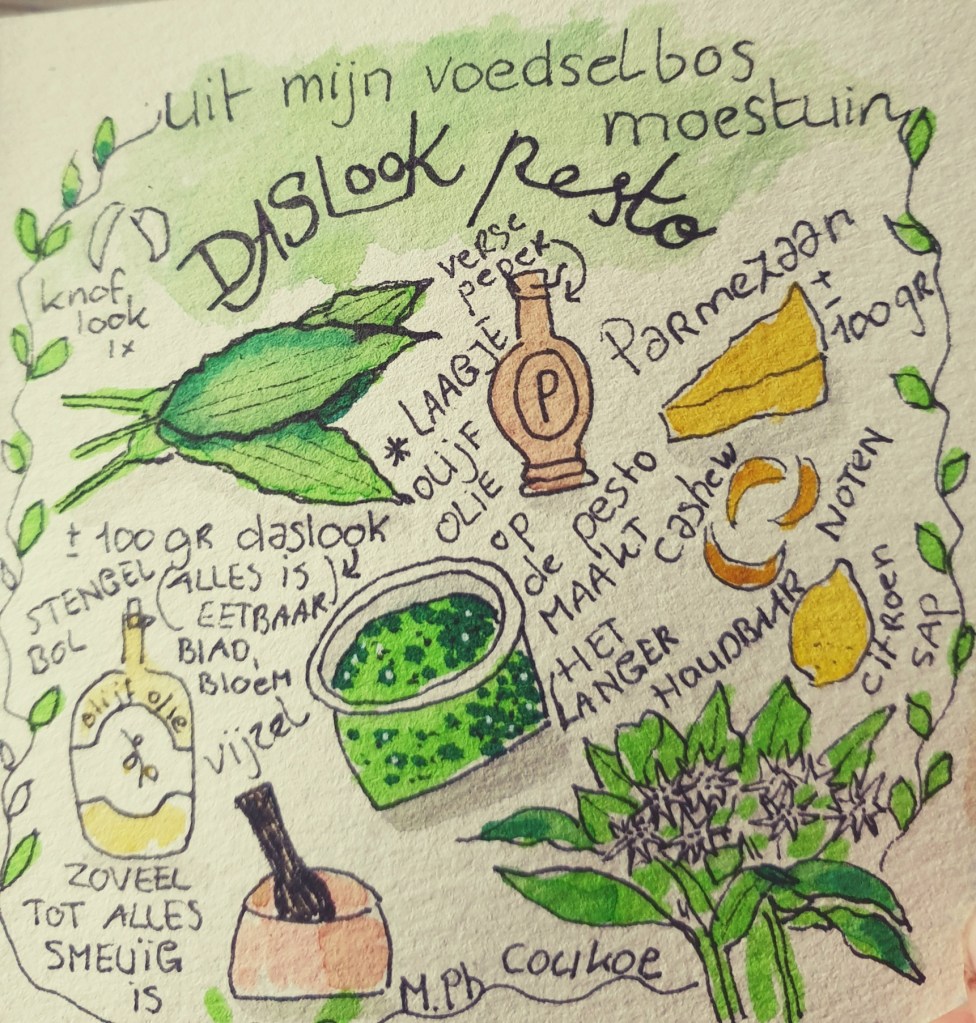 uit mijn voedselbos
moestuin
DASLOOK pesto
knof
look
1x
verse
peper
P
Parmezaan
±
100 gr
* LAAGJE
OLIJF
OLIE
OP
de pesto
MAAKT
(HET
LANGER
HOUDBAAR
cashew
NOTEN
citroen
SAP
± 100 gr daslook
(ALLES IS
EETBAAR)
BLAD,
Bloem
STENGEL
BOL
olijf olie
vijzel
ZOVEEL
TOT ALLES
SMEUÏG
IS
M.Ph